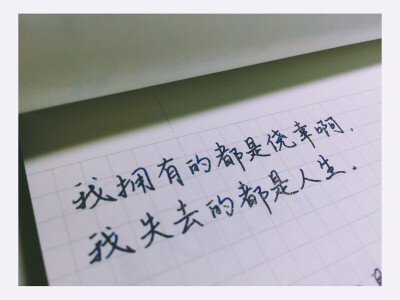 我拥有的都是侥幸啊，
我失去的都是人生．